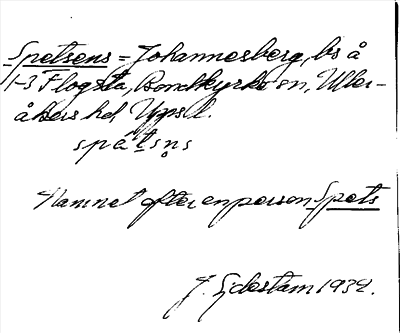 Spetsens = Johannesberg, bs å
1-3 Flogsta, Bondkyrko sn, Uller-
åkers hd, Uppsl.
spetsn̥s
Namnet efter en person Spets
J. Sjöstam 1932.